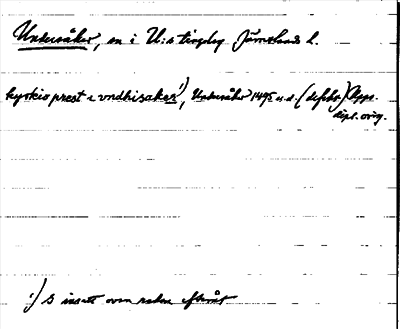 Undersåker, sn i U:s tingslag Jämtlands l.
kyrkio prest i vndhisaker¹), Undersåker 1495 u.d. (defekt) Upps.
dipl. orig.
¹) s insatt ovan raden efteråt